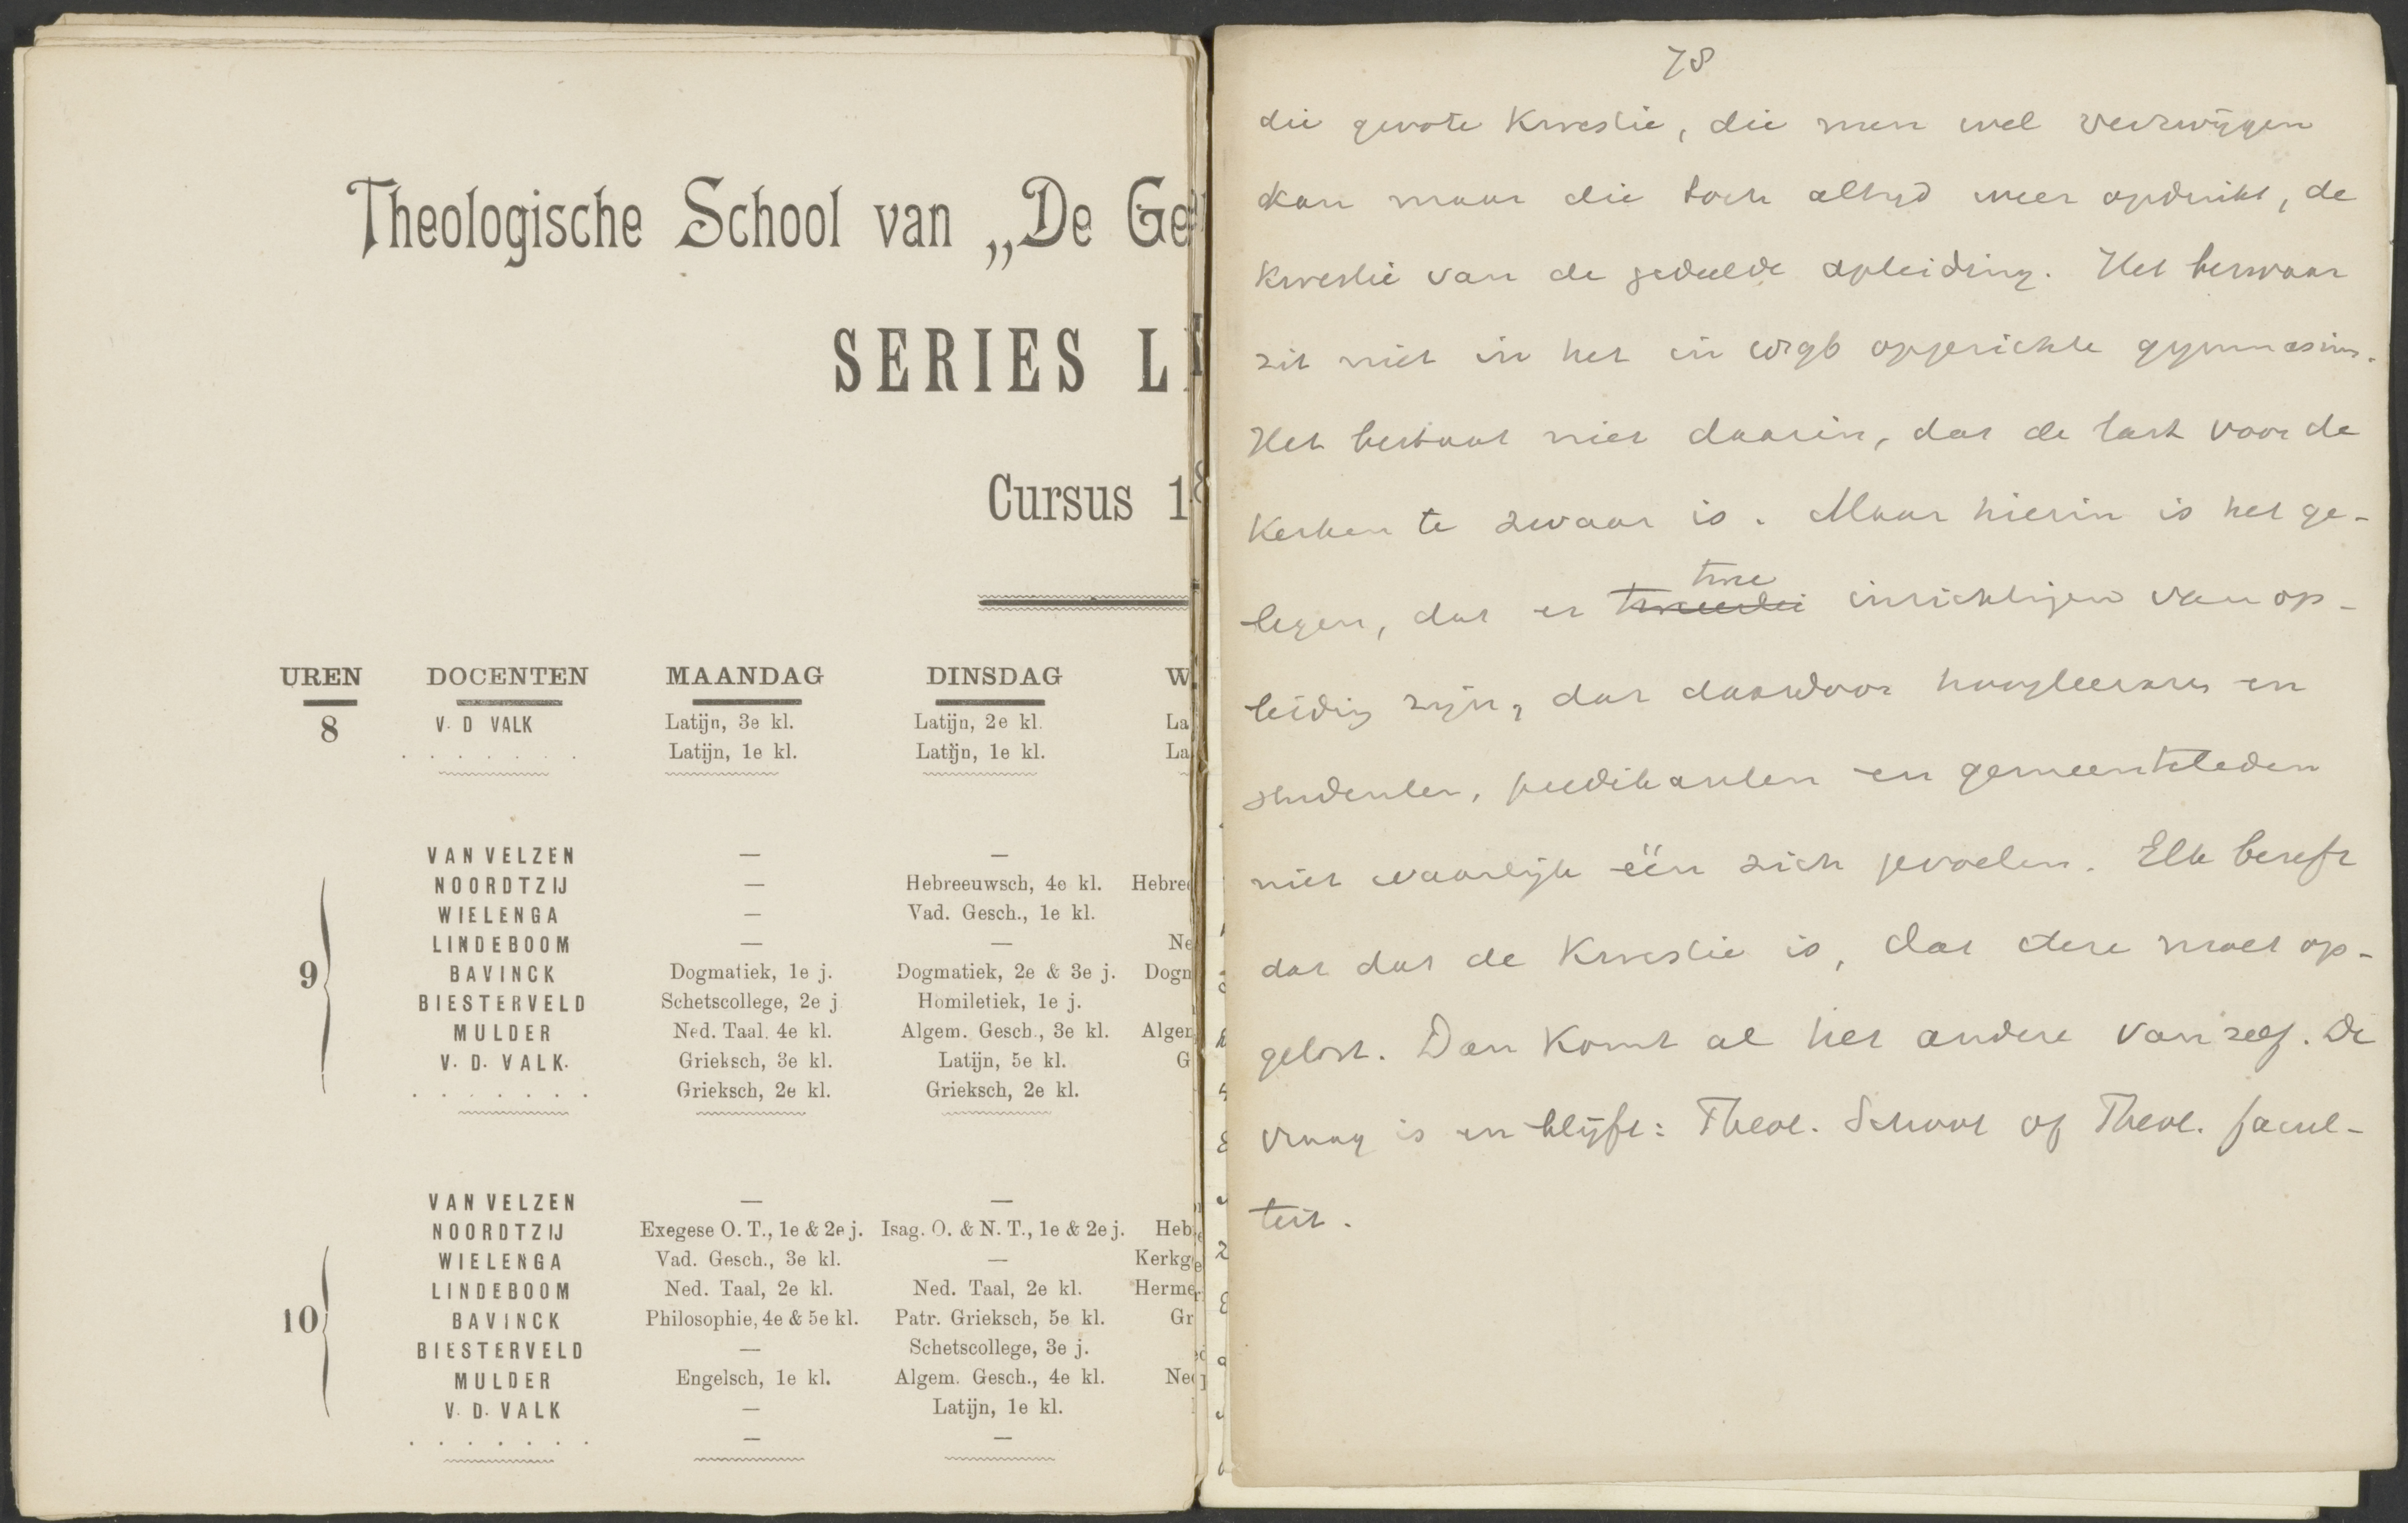 Theologische School van „De Ge
SERIES L
Cursus 1
UREN DOCENTEN MAANDAG DINSDAG W
8 V. D VALK Latijn, 3e kl. Latijn, 2e kl. La
. . . . . . . Latijn, 1e kl. Latijn, 1e kl. La
VAN VELZEN — —
NOORDTZIJ — Hebreeuwsch, 4e kl. Hebre
WIELENGA — Vad. Gesch., 1e kl.
LINDEBOOM — — Ne
9 BAVINCK Dogmatiek, 1e j. Dogmatiek, 2e & 3e j. Dogn
BIESTERVELD Schetscollege, 2e j Homiletiek, 1e j.
MULDER Ned. Taal. 4e kl. Algem. Gesch., 3e kl. Alger
V. D. VALK. Grieksch, 3e kl. Latijn, 5e kl. G
. . . . . . . Grieksch, 2e kl. Grieksch, 2e kl.
VAN VELZEN — —
NOORDTZIJ Exegese O. T., 1e & 2e j. Isag. O. & N. T., 1e & 2e j. Heb
WIELENGA Vad. Gesch., 3e kl. — Kerkg
LINDEBOOM Ned. Taal, 2e kl. Ned. Taal, 2e kl. Herme
10 BAVINCK Philosophie, 4e & 5e kl. Patr. Grieksch, 5e kl. Gr
BIESTERVELD — Schetscollege, 3e j.
MULDER Engelsch, 1e kl. Algem. Gesch., 4e kl. Ne
V. D. VALK — Latijn, 1e kl.
. . . . . . . — —
78
die groote Kwestie, die men wel verzwijgen
kan maar die toch altijd weer opduikt, de
Kwestie van de gedeelde opleiding. Het bezwaar
zit niet in het in opgerichte gymnasium.
Het bestaat niet daarin, dat de last voor de
Kerken te zwaar is. Maar hierin is het ge-
legen, dat er tweeërlei twee inrichtingen van op-
leiding zijn, dat daardoor hoogleeraren en
studenten, predikanten en gemeenteleden
niet waarlijk één zich gevoelen. Elk beseft
dat dat de Kwestie is, dat deze moet op-
gelost. Dan Komt al het andere van zelf. De
vraag is en blijft: Theol. School of Theol. facul-
teit.